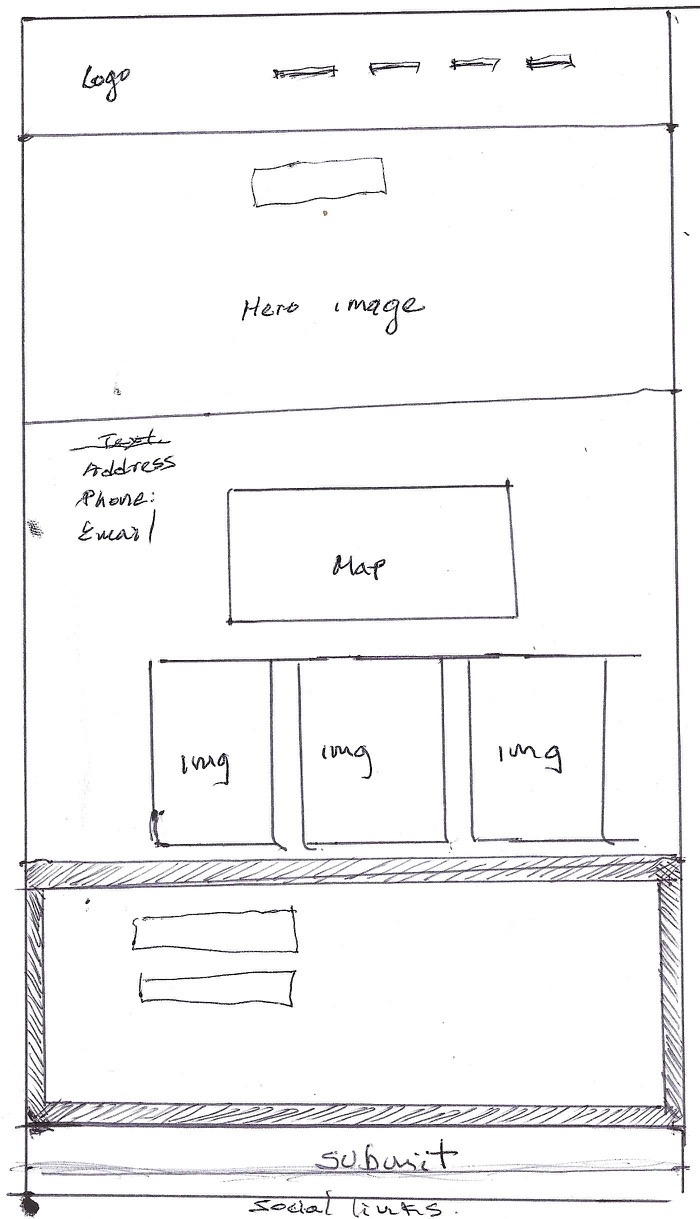 Logo
Hero image
Text
Address
Phone:
Email
Map
img img img
submit
social links.